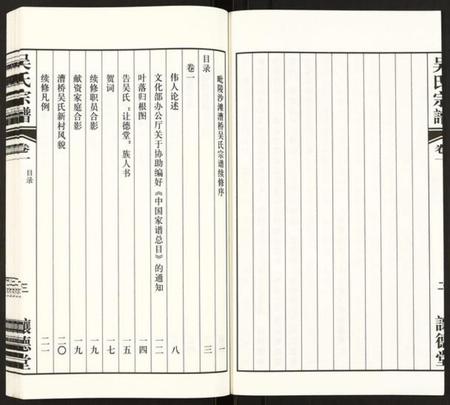 吴氏宗谱
卷一
二
讓德堂
毗陵沙滩漕桥吴氏宗谱续修序 一
目录 三
卷一
伟人论述 八
文化部办公厅关于协助编好《中国家谱总目》的通知 一二
叶落归根图 一四
告吴氏“让德堂”族人书 一五
贺词 一七
续修职员合影 一九
献资家庭合影 一九
漕桥吴氏新村风貌 二〇
续修凡例 二一
吴氏宗譜
卷一
目录
讓德堂